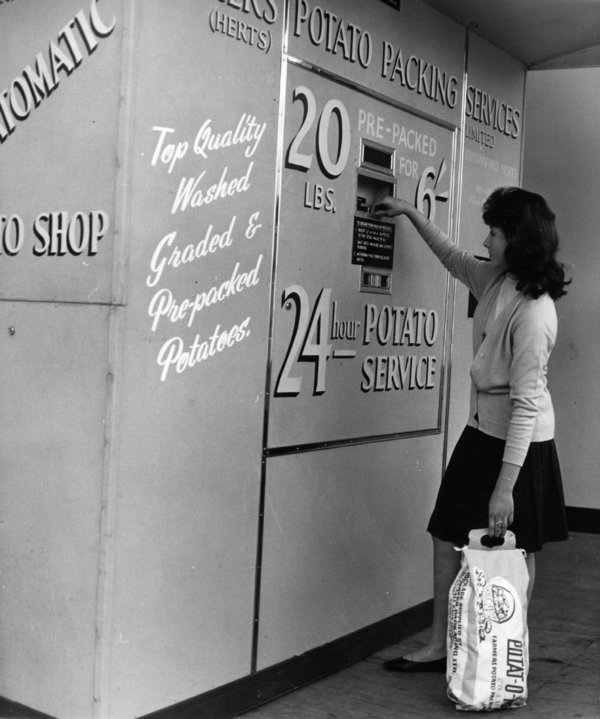 TOMATIC
TO SHOP
ERS
(HERTS)
Top Quality
Washed
Graded &
Pre-packed
Potatoes.
POTATO PACKING
SERVICES
LIMITED
20
LBS.
PRE-PACKED
FOR
6/-
24 hour POTATO
SERVICE
POTAT-O-
FARMERS POTATO